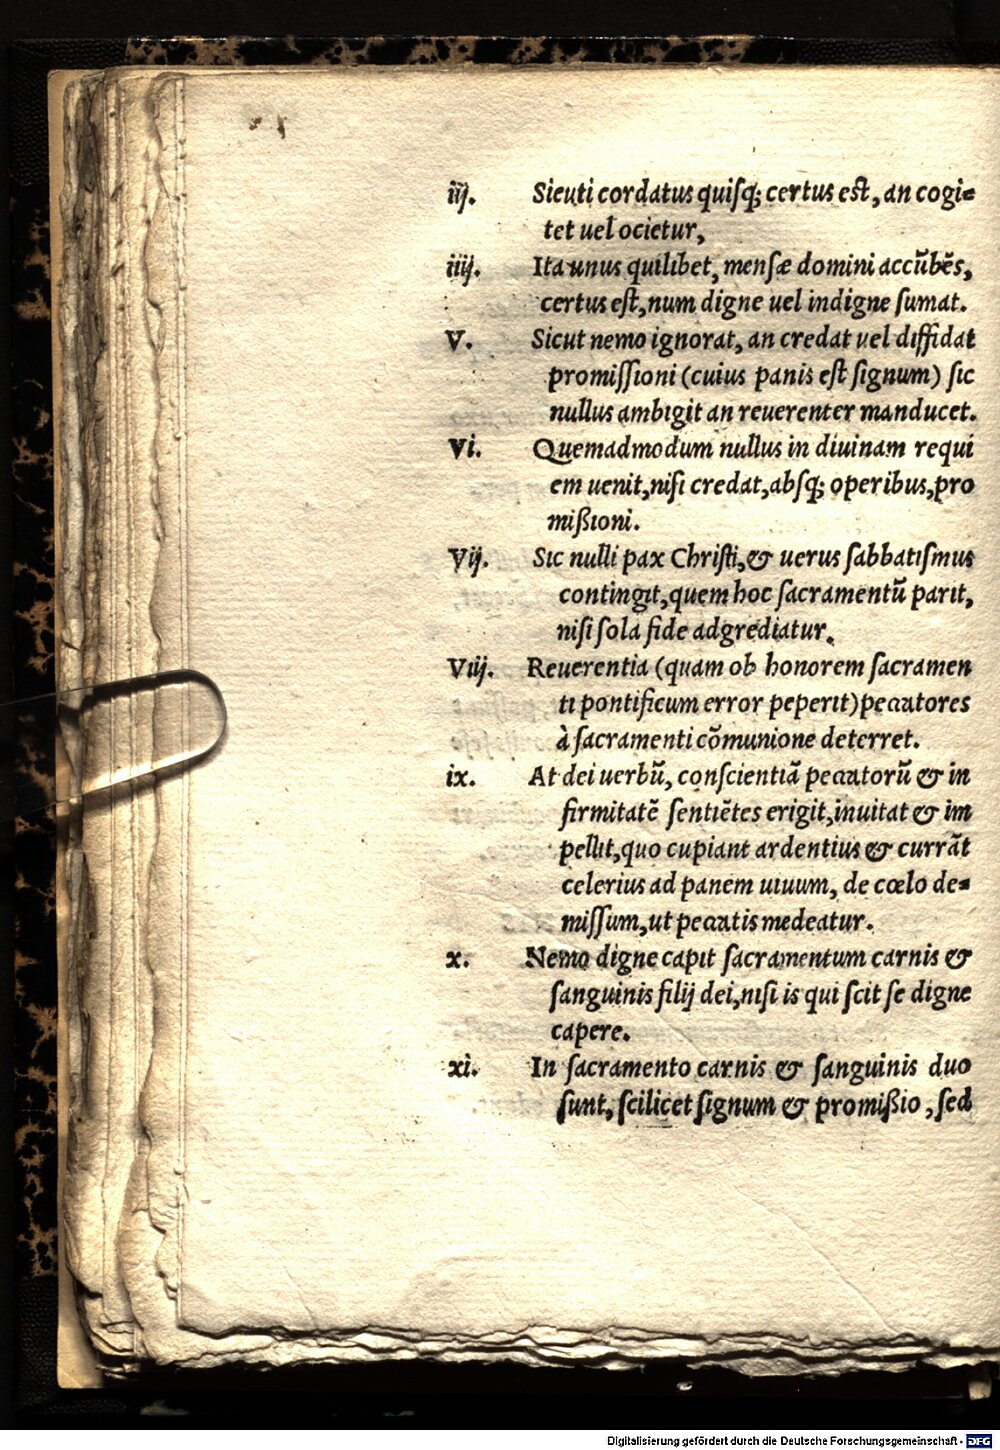 iij. Sicuti cordatus quisq; certus est, an cogi=
tet uel ocietur,
iiij. Ita unus quilibet, mensæ domini accũbẽs,
certus est, num digne uel indigne sumat.
V. Sicut nemo ignorat, an credat uel diffidat
promissioni (cuius panis est signum) sic
nullus ambigit an reuerenter manducet.
Vi. Quemadmodum nullus in diuinam requi
em uenit, nisi credat, absq; operibus, pro
mißioni.
Vij. Sic nulli pax Christi, & uerus sabbatismus
contingit, quem hoc sacramentũ parit,
nisi sola fide adgrediatur.
Viij. Reuerentia (quam ob honorem sacramen
ti pontificum error peperit) peccatores
à sacramenti cõmunione deterret.
ix. At dei uerbũ, conscientiã peccatorũ & in
firmitatẽ sentiẽtes erigit, inuitat & im
pellit, quo cupiant ardentius & currãt
celerius ad panem uiuum, de cœlo de=
missum, ut peccatis medeatur.
x. Nemo digne capit sacramentum carnis &
sanguinis filij dei, nisi is qui scit se digne
capere.
xi. In sacramento carnis & sanguinis duo
sunt, scilicet signum & promißio, sed
Digitalisierung gefördert durch die Deutsche Forschungsgemeinschaft - DFG